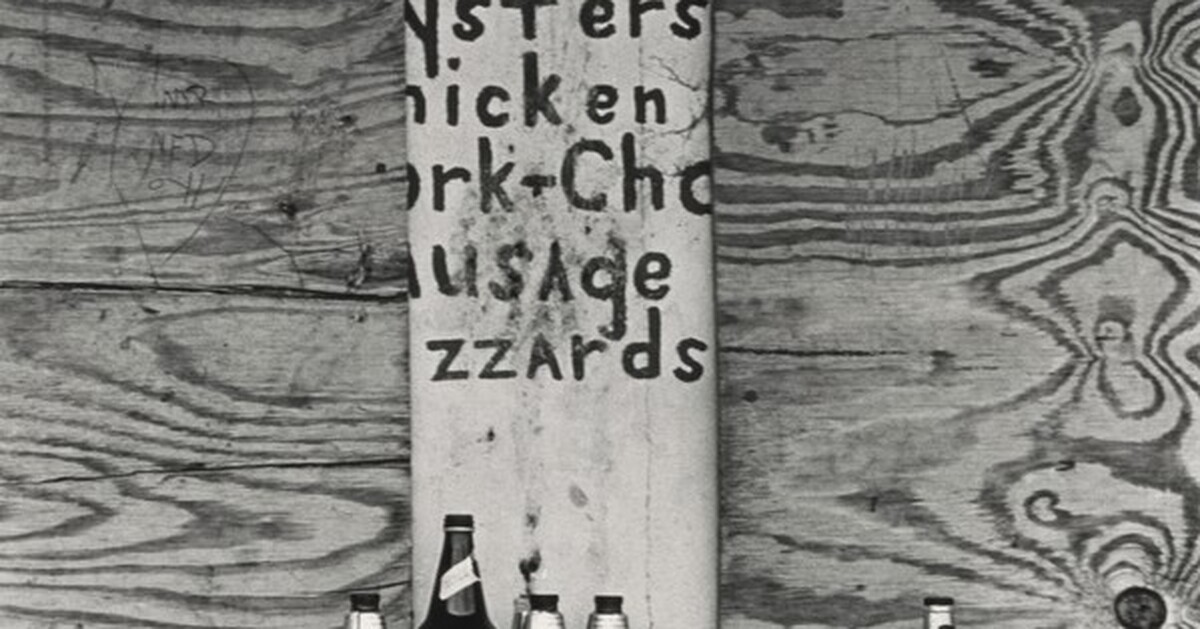 ysters
hicken
ork-Cho
ausAge
zzArds